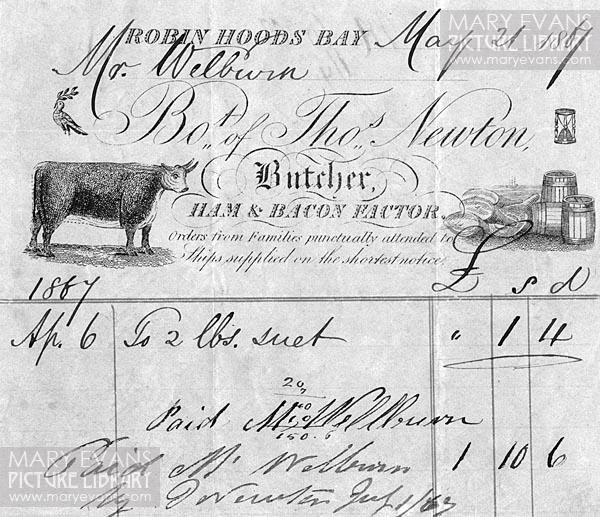 MARY EVANS
PICTURE LIBRARY
www.maryevans.com
ROBIN HOODS BAY May 21 1867
Mr. Welburn
Bot. of Thos. Newton,
Butcher,
HAM & BACON FACTOR.
Orders from Families punctually attended to
Ships supplied on the shortest notice.
£ s d
1867
Ap. 6 To 2 lbs. suet " 1 4
Paid Mr Wellburn
Paid Mr Welburn 1 10 6
By Newton July 1/67
MARY EVANS
PICTURE LIBRARY
www.maryevans.com
MARY EVANS
PICTURE LIBRARY
www.maryevans.com